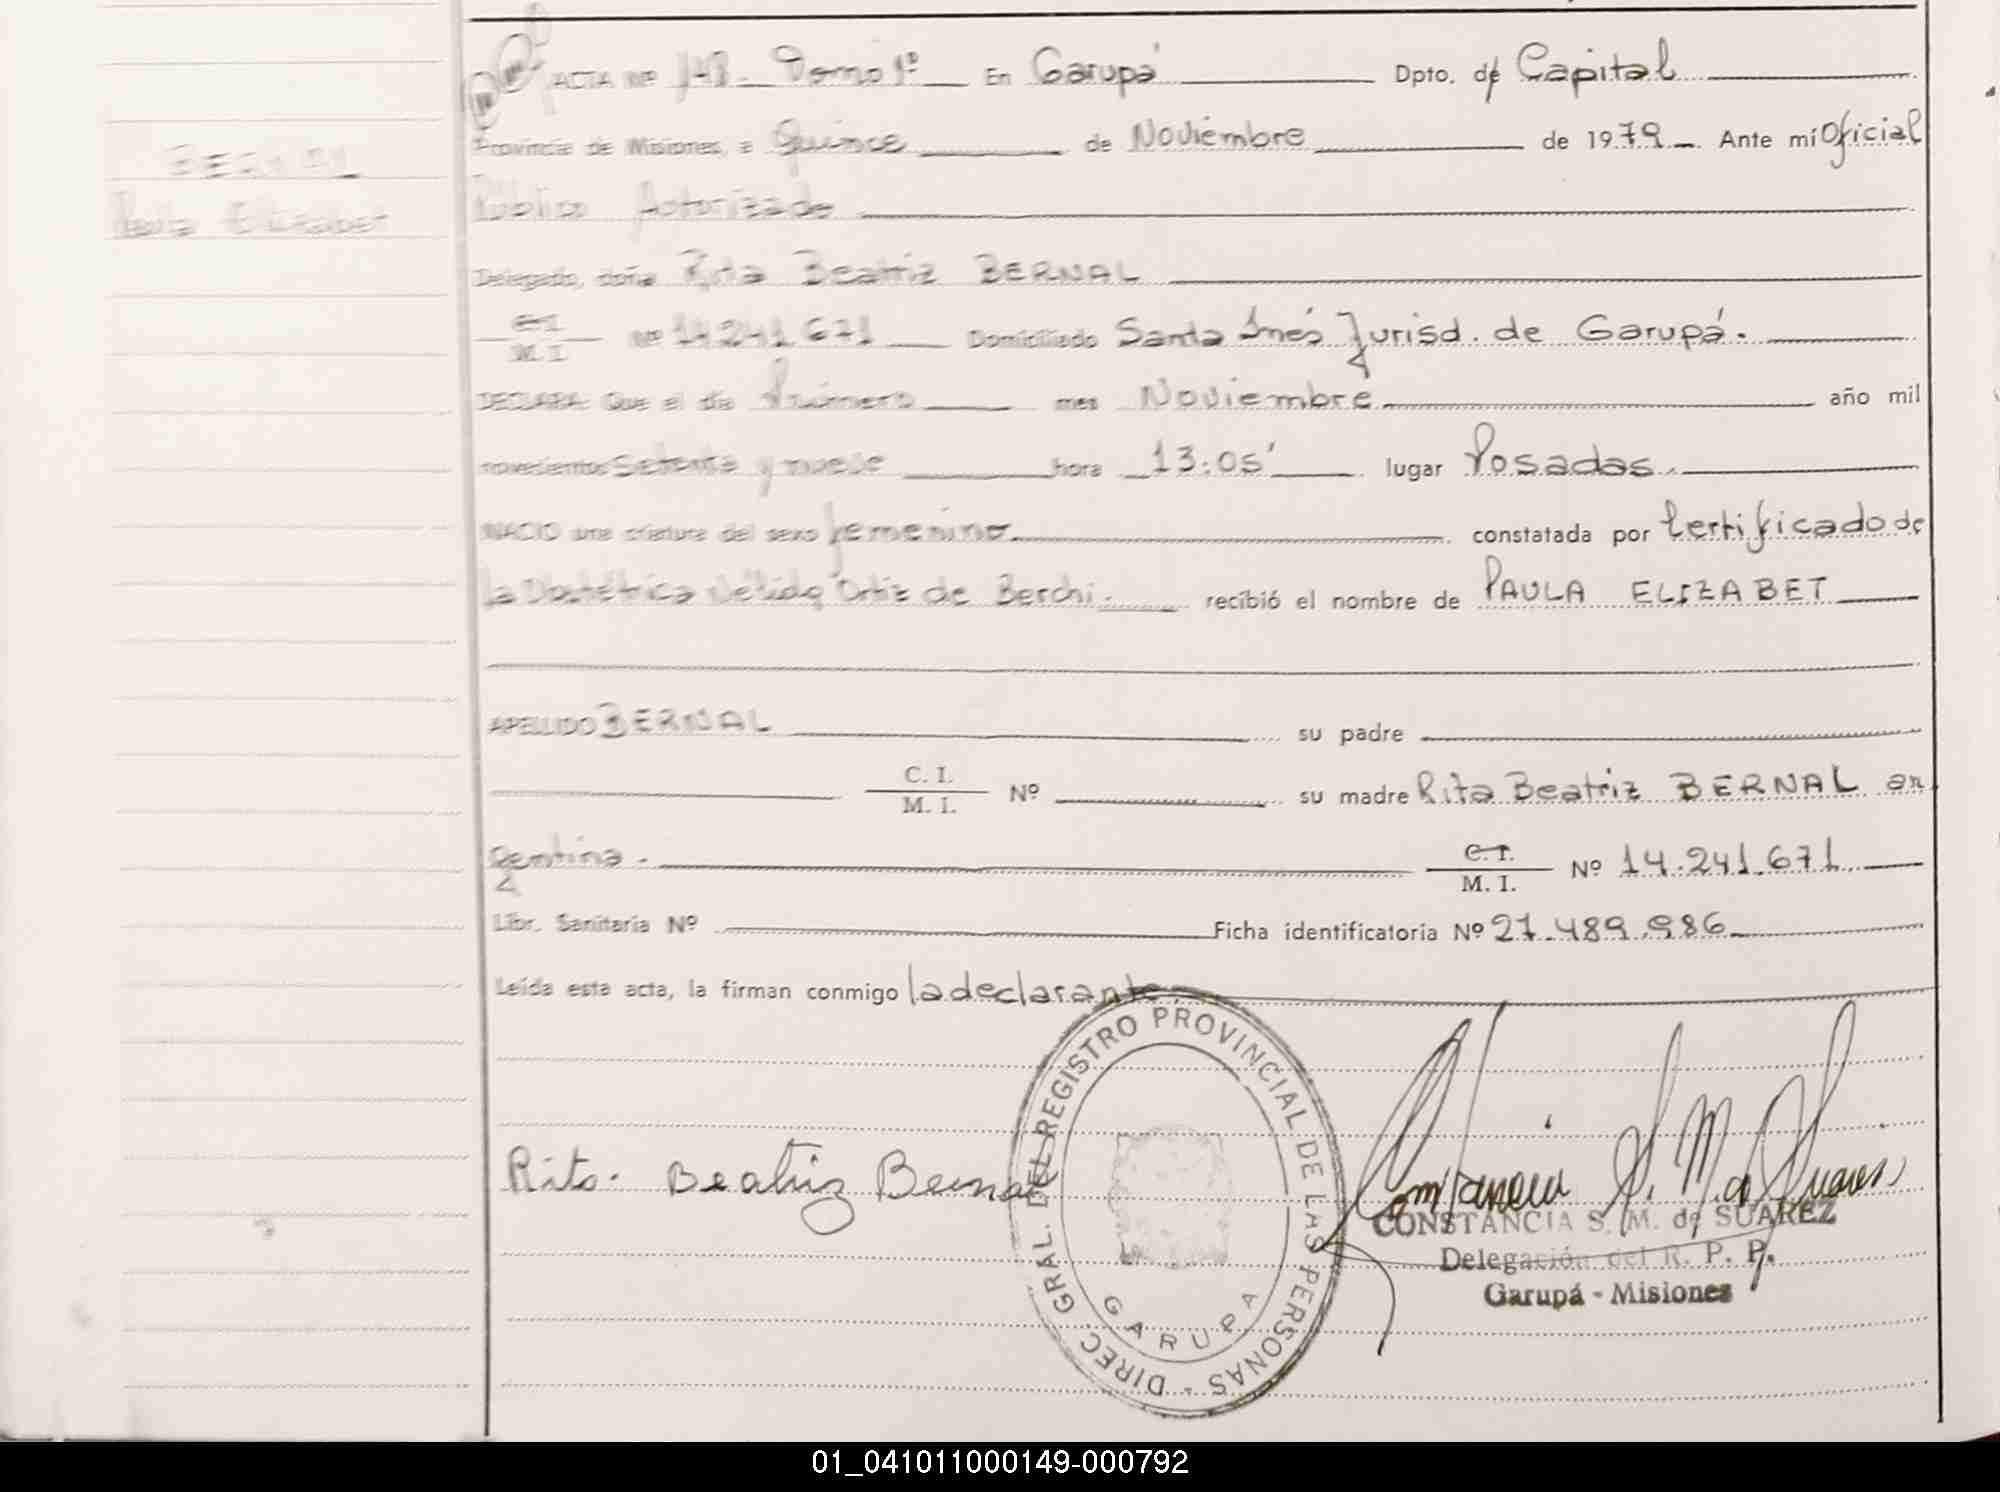 ACTA Nº 148 Tomo 1º En Garupá Dpto. de Capital
Provincia de Misiones, a Quince de Noviembre de 1979 Ante mí Oficial
BERNAL
Público Autorizado
Paula Elizabet
Delegado, doña Rita Beatriz BERNAL
C.I.
M. I. Nº 14.241.671 Domiciliado Santa Inés Jurisd. de Garupá.
DECLARA: Que el día Primero mes Noviembre año mil
novecientos Setenta y nueve hora 13:05' lugar Posadas.
NACIO una criatura del sexo femenino constatada por Certificado de
la Obstétrica Nélida Ortiz de Berchi. recibió el nombre de PAULA ELIZABET
APELLIDO BERNAL su padre
C. I.
M. I. Nº su madre Rita Beatriz BERNAL ar
gentina. C. I.
M. I. Nº 14.241.671
Libr. Sanitaria Nº Ficha identificatoria Nº 27.489.986
Leída esta acta, la firman conmigo la declarante.
Rita Beatriz Bernal
DIREC. GRAL. DEL REGISTRO PROVINCIAL DE LAS PERSONAS -
GARUPA
Constancia S. M. de Suarez
CONSTANCIA S. M. de SUAREZ
Delegación del R. P. P.
Garupá - Misiones
01_041011000149-000792